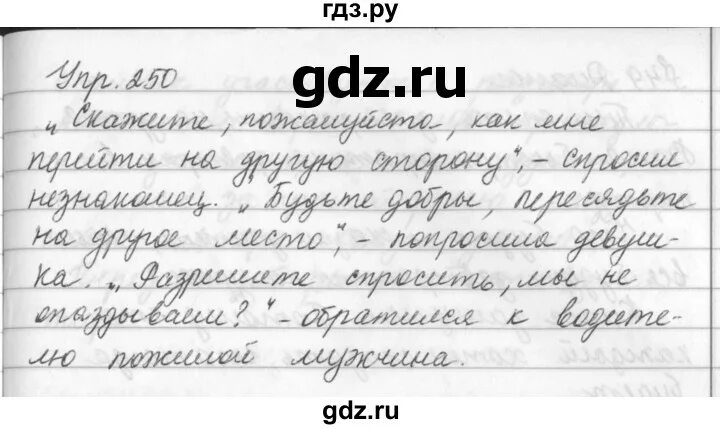 гдз.ру
Упр. 250
gdz.ru
„Скажите, пожалуйста, как мне
перейти на другую сторону“, – спросил
незнакомец. „Будьте добры, пересядьте
на другое место“, – попросила девуш-
ка. „Разрешите спросить, мы не
опаздываем?“ – обратился к водите-
лю пожилой мужчина.
gdz.ru